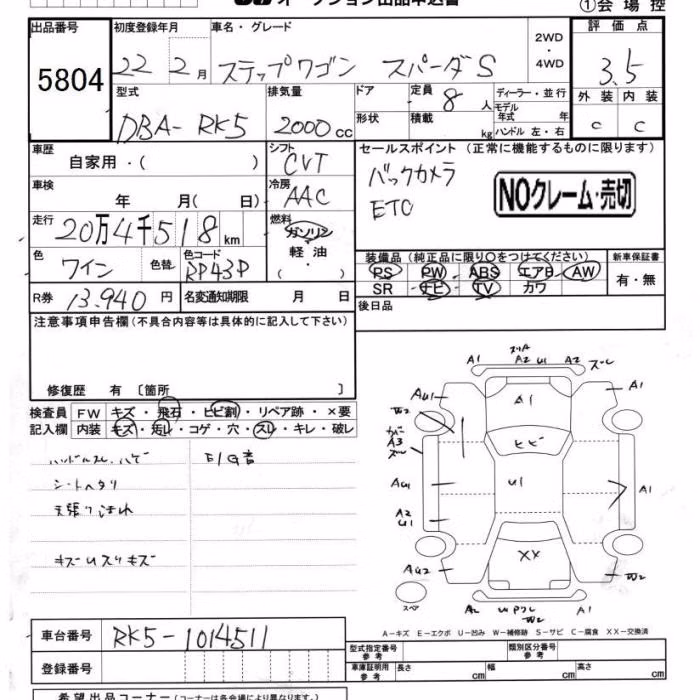 オークション出品申込書 ①会場控
出品番号 初度登録年月 車名・グレード 2WD・4WD 評価点
5804 22年 2月 ステップワゴン スパーダS 3.5
外装 内装
C C
型式 排気量 ドア 定員 8人 ディーラー・並行
モデル年式 年
DBA-RK5 2000cc 形状 積載 kg ハンドル 左・右
車歴 シフト セールスポイント (正常に機能するものに限ります)
自家用・( ) CVT バックカメラ
車検 冷房 ETC NOクレーム・売切
年 月( 日) AAC
走行 燃料
20万4千518km ガソリン
軽油
( )
色 色替 色コード 装備品 (純正品に限り○をつけてください) 新車保証書
ワイン RP43P PS PW ABS エアB AW 有・無
SR ナビ TV カワ
R券 13.940円 名変通知期限 月 日 後日品
注意事項申告欄(不具合内容等は具体的に記入して下さい)
修復歴 有 〔箇所 〕
検査員 FW キズ・飛石・ヒビ割・リペア跡・×要
記入欄 内装 キズ・汚レ・コゲ・穴・スレ・キレ・破レ
ハンドルスレ、ハゲ E/G音
シートヘタリ
天張り汚れ
キズUスリキズ
A1 スリA A2 U1 A2 スレ
AU1 A1 A1
W2
カバー A3 スレ
ヒビ
AU1 U1 A1
A2 U1
XX
AU2 W2
スペア A2 U W2 A1
A-キズ E-エクボ U-凹み W-補修跡 S-サビ C-腐食 XX-交換済
車台番号 RK5-1014511
型式指定番号 参考 類別区分番号 参考
登録番号 車庫証明用 参考 長さ cm 幅 cm 高さ cm
希望出品コーナー(コーナーは各会場により異なります。)